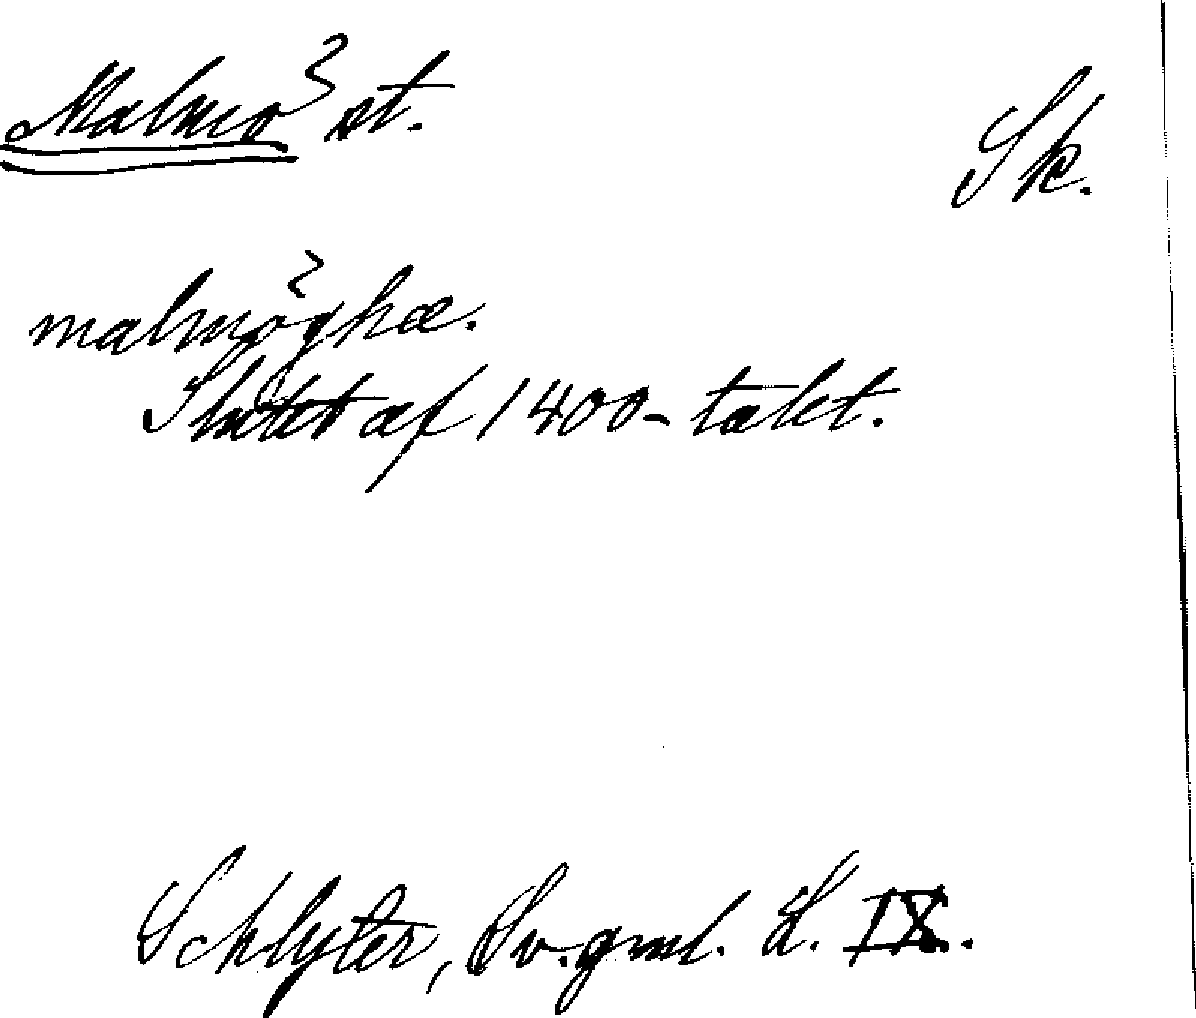 Malmö st.
Sk.
malmöghæ.
Slutet af 1400-talet.
Schlyter, Sv. gml. L. IX.